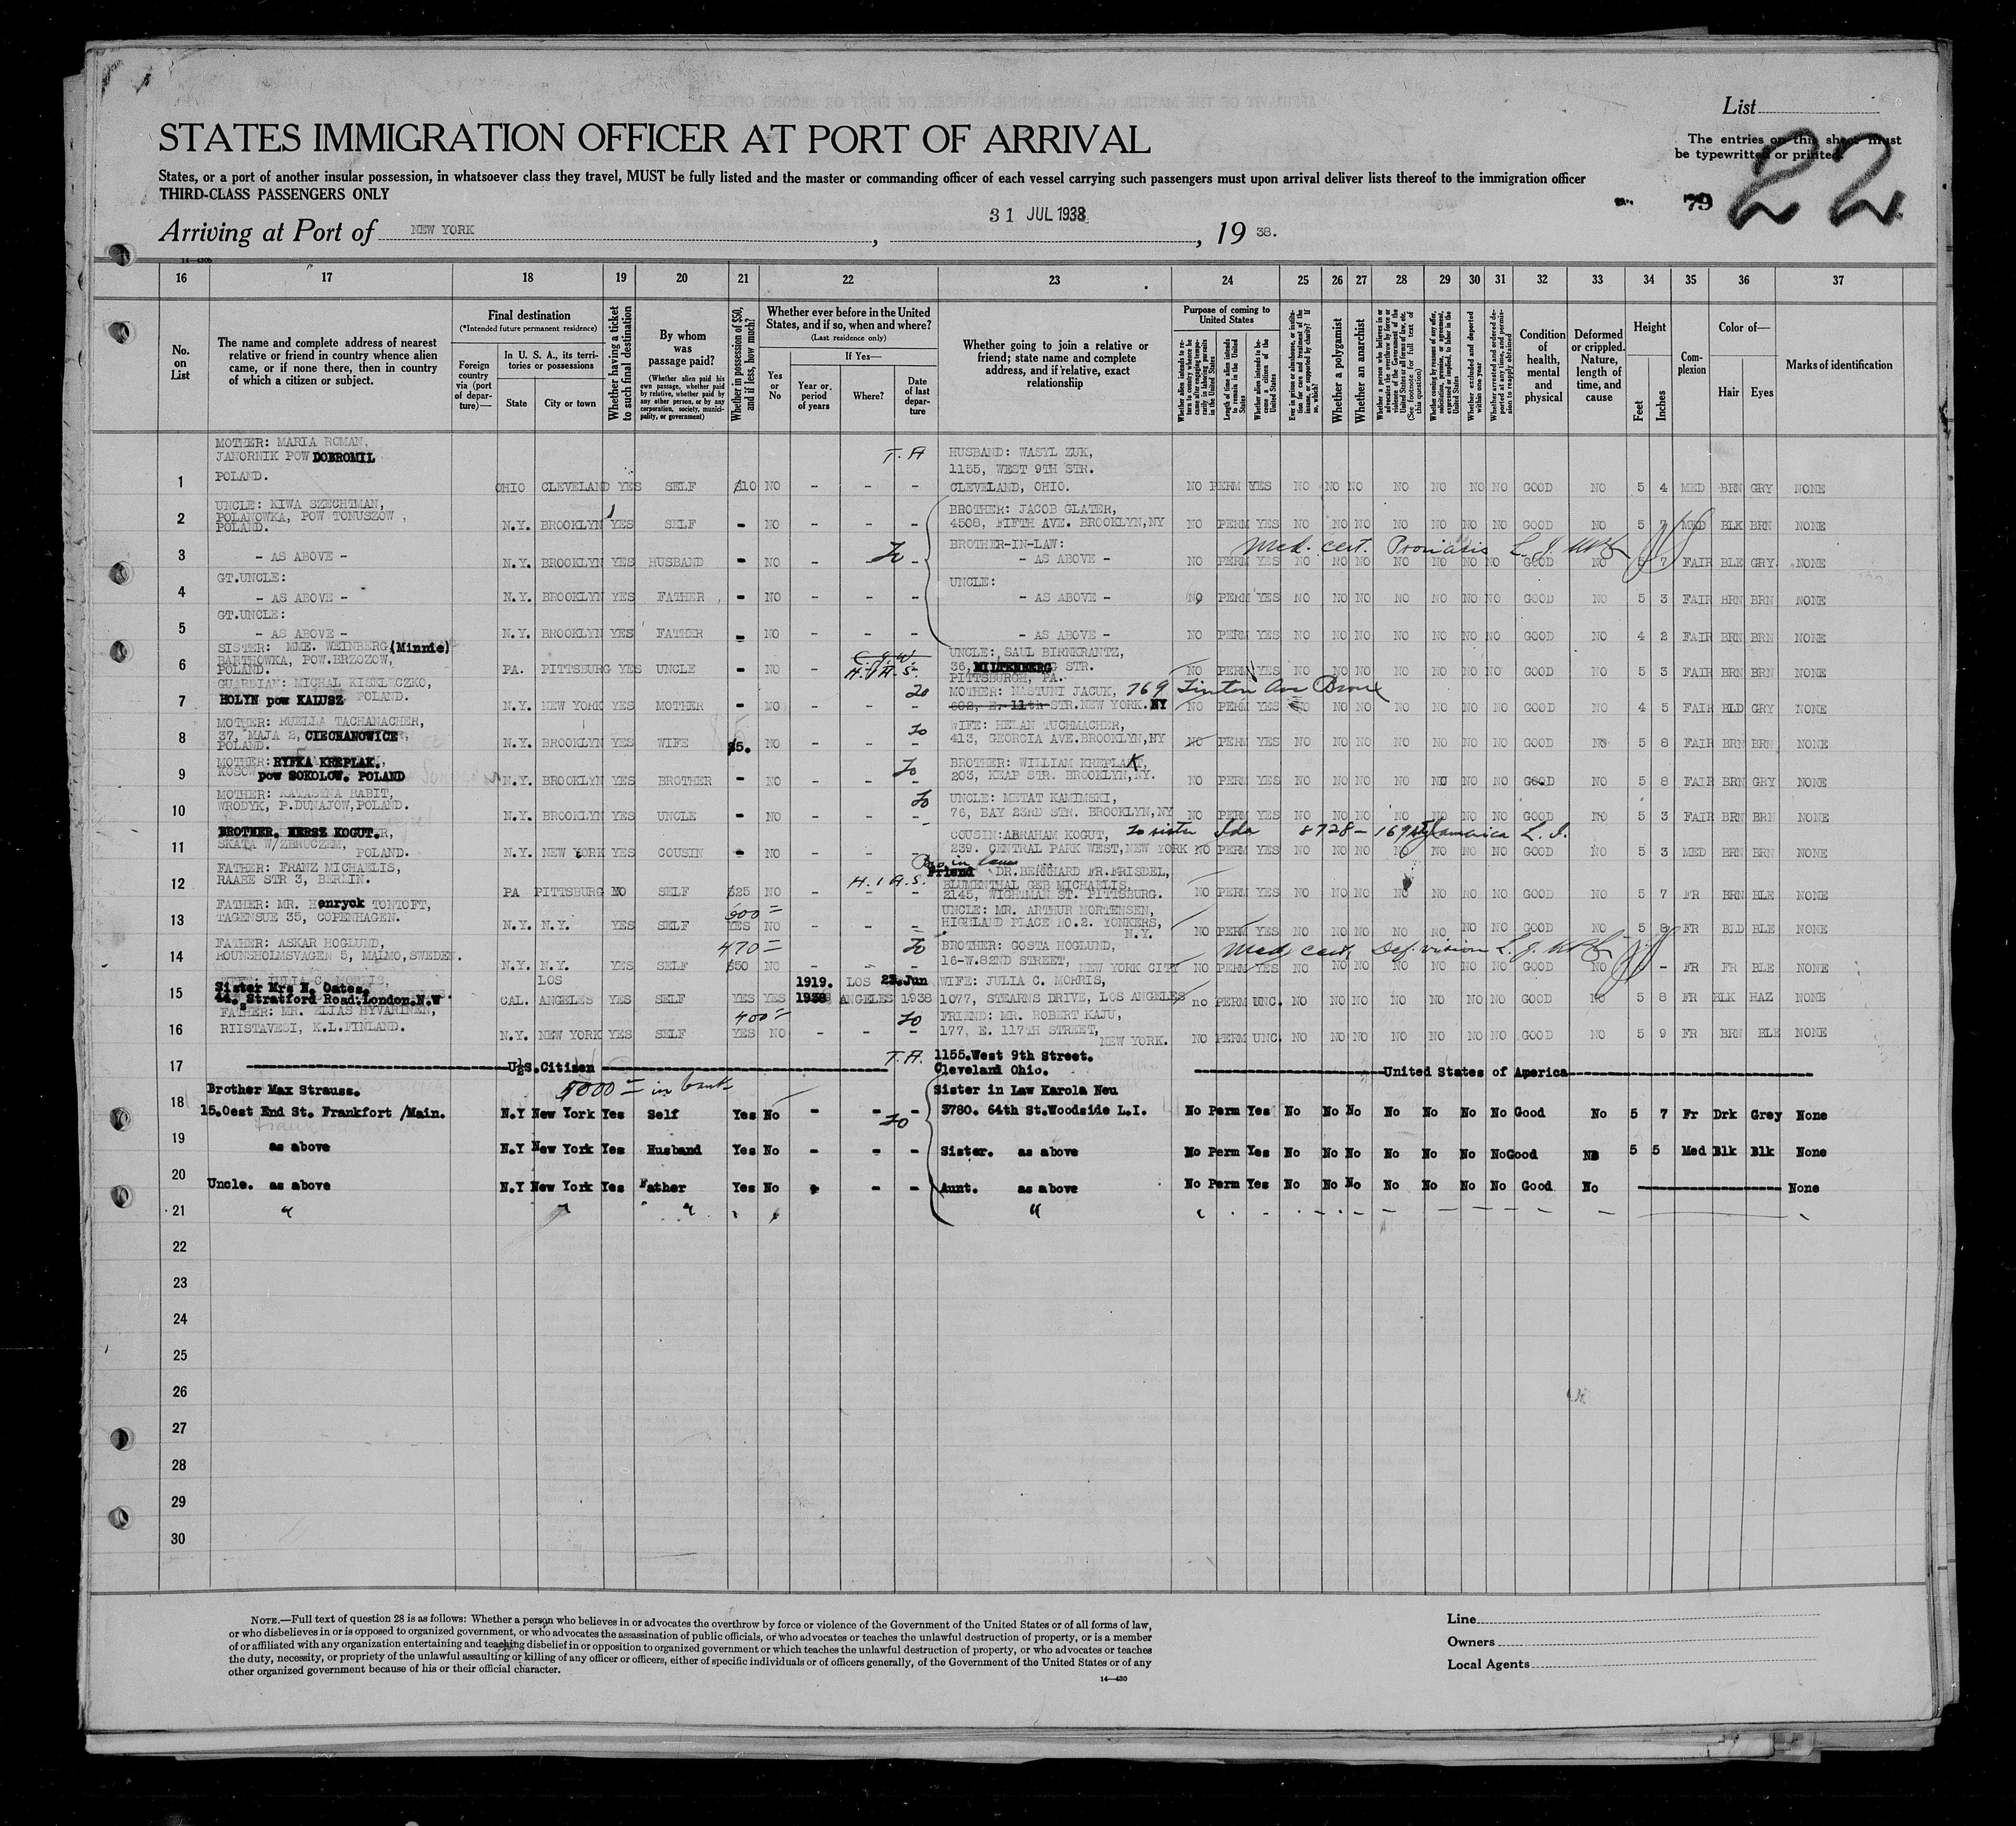 List
STATES IMMIGRATION OFFICER AT PORT OF ARRIVAL
The entries on this sheet must
be typewritten or printed.
22
79
States, or a port of another insular possession, in whatsoever class they travel, MUST be fully listed and the master or commanding officer of each vessel carrying such passengers must upon arrival deliver lists thereof to the immigration officer
THIRD-CLASS PASSENGERS ONLY
31 JUL 1938
Arriving at Port of NEW YORK , , 19 38.
14—430b
16 17 18 19 20 21 22 23 24 25 26 27 28 29 30 31 32 33 34 35 36 37
No. on List
The name and complete address of nearest relative or friend in country whence alien came, or if none there, then in country of which a citizen or subject.
Final destination
(*Intended future permanent residence)
Foreign country via (port of departure)—
In U. S. A., its territories or possessions
State City or town
Whether having a ticket to such final destination
By whom was passage paid?
(Whether alien paid his own passage, whether paid by relative, whether paid by any other person, or by any corporation, society, municipality, or government)
Whether in possession of $50, and if less, how much?
Whether ever before in the United States, and if so, when and where?
(Last residence only)
Yes or No
If Yes—
Year or period of years
Where?
Date of last departure
Whether going to join a relative or friend; state name and complete address, and if relative, exact relationship
Purpose of coming to United States
Length of time alien intends to remain in the United States
Whether alien intends to become a citizen of the United States
Whether a polygamist
Whether an anarchist
(See footnote for full text of this question)
Whether excluded and deported within one year
Condition of health, mental and physical
Deformed or crippled. Nature, length of time, and cause
Height
Feet Inches
Complexion
Color of—
Hair Eyes
Marks of identification
1 MOTHER: MARIA ROMAN, T.A HUSBAND: WASYL ZUK,
JANORNIK POW DOBROMIL 1155, WEST 9TH STR.
POLAND. OHIO CLEVELAND YES SELF $10 NO - - - CLEVELAND, OHIO. NO PERM YES NO NO NO NO NO NO NO GOOD NO 5 4 MED BRN GRY NONE
2 UNCLE: KIWA SZECHTMAN, BROTHER: JACOB GLATER,
POLANOWKA, POW TONUSZOW, POLAND. N.Y. BROOKLYN YES SELF - NO - - - 4508, FIFTH AVE. BROOKLYN,NY NO PERM YES NO NO NO NO NO NO NO GOOD NO 5 7 MED BLK BRN NONE
3 BROTHER-IN-LAW: Med. cert. Psoriasis
- AS ABOVE - N.Y. BROOKLYN YES HUSBAND - NO - - - - AS ABOVE - NO PERM YES NO NO NO NO NO NO NO GOOD NO 5 7 FAIR BLE GRY. NONE
4 GT.UNCLE: UNCLE:
- AS ABOVE - N.Y. BROOKLYN YES FATHER - NO - - - - AS ABOVE - NO PERM YES NO NO NO NO NO NO NO GOOD NO 5 3 FAIR BRN BRN NONE
5 GT.UNCLE:
- AS ABOVE - N.Y. BROOKLYN YES FATHER - NO - - - - AS ABOVE - NO PERM YES NO NO NO NO NO NO NO GOOD NO 4 2 FAIR BRN BRN NONE
6 SISTER: MME. WEINBERG (Minnie) UNCLE: SAUL BIRNKRANTZ,
BARTHOWKA, POW.BRZOZOW, POLAND. PA. PITTSBURG YES UNCLE - NO H.I.A.S. 36, MILTENBERG STR. PITTSBURGH, PA. NO PERM YES NO NO NO NO NO NO NO GOOD NO 5 3 FAIR BRN BRN NONE
7 GUARDIAN: MICHAL KISELECZKO, MOTHER: NASTUNI JACUK, 769 Tinton Ave Bronx
HOLYN pow KALUSZ POLAND. N.Y. NEW YORK YES MOTHER - NO - - - 602, E. 11th STR.NEW YORK. NY NO PERM YES NO NO NO NO NO NO NO GOOD NO 4 5 FAIR BLD GRY NONE
8 MOTHER: RUELLA TACHANACHER, WIFE: HELAN TUCHMACHER,
37, MAJA 2, CIECHANOWICE, POLAND. N.Y. BROOKLYN YES WIFE $5. NO - - - 413, GEORGIA AVE.BROOKLYN,NY NO PERM YES NO NO NO NO NO NO NO GOOD NO 5 8 FAIR BRN BRN NONE
9 MOTHER: RYFKA KREPLAK. BROTHER: WILLIAM KREPLAK,
KOSOW pow SOKOLOW. POLAND N.Y. BROOKLYN YES BROTHER - NO - - - 203, KEAP STR. BROOKLYN,NY. NO PERM YES NO NO NO NO NO NO NO GOOD NO 5 8 FAIR BRN GRY NONE
10 MOTHER: KATASENA BABIT, UNCLE: METAT KAMIMSKI,
WRODYK, P.DUNAJOW,POLAND. N.Y. BROOKLYN YES UNCLE - NO - - - 76, BAY 23RD STR. BROOKLYN,NY NO PERM YES NO NO NO NO NO NO NO GOOD NO 5 3 FAIR BRN BRN NONE
11 BROTHER. HERSZ KOGUT. COUSIN:ABRAHAM KOGUT, to sister Ida 8728 - 169 St Jamaica L. I.
SKATA W/ZBRUCZEM, POLAND. N.Y. NEW YORK YES COUSIN - NO - - - 239. CENTRAL PARK WEST,NEW YORK NO PERM YES NO NO NO NO NO NO NO GOOD NO 5 3 MED BRN BRN NONE
12 FATHER: FRANZ MICHAELIS, Bro in law Friend DR.BERNHARD FR.FRISDEL,
RAABE STR 3, BERLIN. PA PITTSBURG NO SELF $25 NO H.I.A.S. BLUMENTHAL GEB MICHAELIS, 2145, WIGHTMAN ST. PITTSBURG. NO PERM YES NO NO NO NO NO NO NO GOOD NO 5 7 FR BRN BLE NONE
13 FATHER: MR. Henryck TONTOFT, UNCLE: MR. ARTHUR MORTENSEN,
TAGENSUE 35, COPENHAGEN. N.Y. N.Y. YES SELF YES NO - - - HIGHLAND PLACE NO.2. YONKERS, N.Y. NO PERM YES NO NO NO NO NO NO NO GOOD NO 5 8 FR BLD BLE NONE
14 FATHER: ASKAR HOGLUND, 470= BROTHER: GOSTA HOGLUND, Med cert. Def. vision
ROUNSHOLMSVAGEN 5, MALMO,SWEDEN. N.Y. N.Y. YES SELF $50 NO - - - 16-W.82ND STREET, NEW YORK CITY NO PERM YES NO NO NO NO NO NO NO GOOD NO - FR FR BLE NONE
15 Sister Mrs N. Oates. LOS 1919. LOS 23.Jun WIFE: JULIA C. MORRIS,
44. Stratford Road.London.N.W CAL. ANGELES YES SELF YES YES 1938 ANGELES 1938 1077, STEARNS DRIVE, LOS ANGELES no PERM UNC. NO NO NO NO NO NO NO GOOD NO 5 8 FR BLK HAZ NONE
16 FATHER: MR. ELIAS HYVARINEN, 400= FRIEND: MR. ROBERT KAJU,
RIISTAVESI, K.L.FINLAND. N.Y. NEW YORK YES SELF YES NO - - - 177, E. 117TH STREET, NEW YORK. NO PERM UNC. NO NO NO NO NO NO NO GOOD NO 5 9 FR BRN BLE NONE
17 U.S.Citizen T.A. 1155.West 9th Street. Cleveland Ohio. United States of America
18 Brother Max Strauss. 5000= in bank Sister in Law Karola Neu
15.Oest End St. Frankfort /Main. N.Y New York Yes Self Yes No - - - 3780. 64th St.Woodside L.I. No Perm Yes No No No No No No No Good No 5 7 Fr Drk Grey None
19 as above N.Y New York Yes Husband Yes No - - - Sister. as above No Perm Yes No No No No No No No Good No 5 5 Med Blk Blk None
20 Uncle. as above N.Y New York Yes Father Yes No - - - Aunt. as above No Perm Yes No No No No No No No Good No None
21 " " " "
22
23
24
25
26
27
28
29
30
NOTE.—Full text of question 28 is as follows: Whether a person who believes in or advocates the overthrow by force or violence of the Government of the United States or of all forms of law,
or who disbelieves in or is opposed to organized government, or who advocates the assassination of public officials, or who advocates or teaches the unlawful destruction of property, or is a member
of or affiliated with any organization entertaining and teaching disbelief in or opposition to organized government or which teaches the unlawful destruction of property, or who advocates or teaches
the duty, necessity, or propriety of the unlawful assaulting or killing of any officer or officers, either of specific individuals or of officers generally, of the Government of the United States or of any
other organized government because of his or their official character.
14—430
Line
Owners
Local Agents